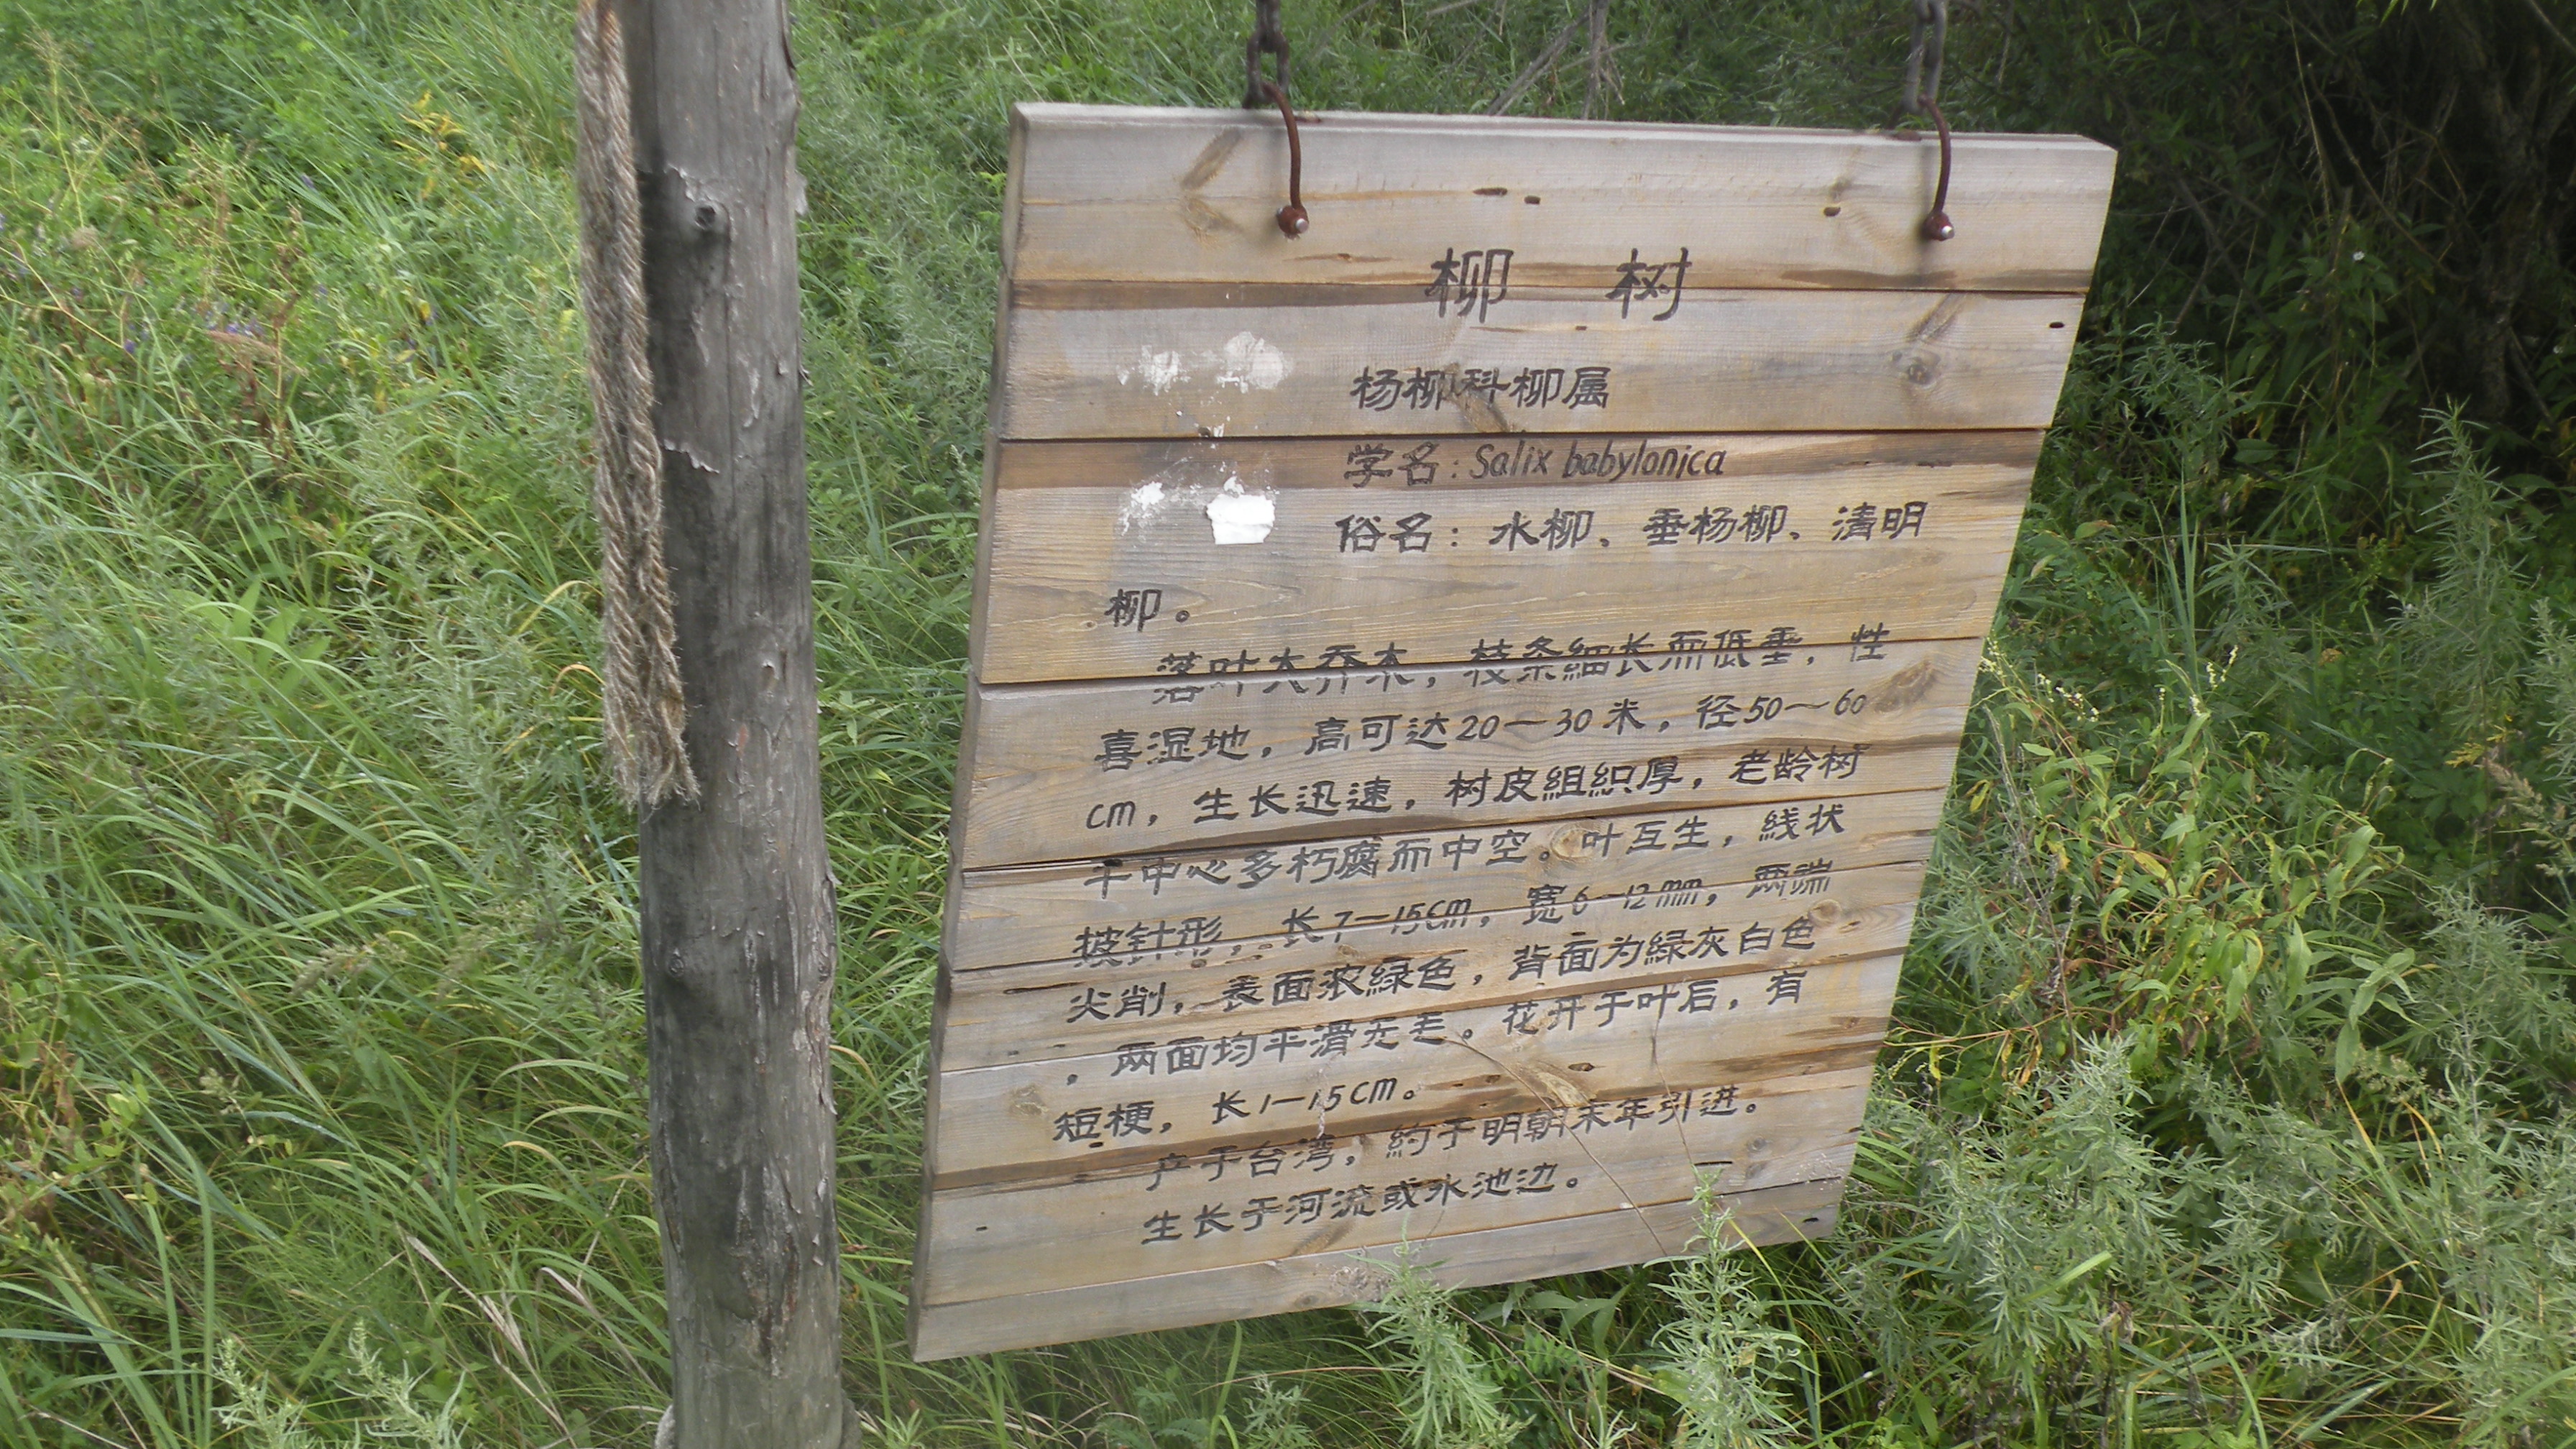 柳 树
杨柳科柳属
学名：Salix babylonica
俗名：水柳、垂杨柳、清明
柳。
落叶大乔木，枝条細长而低垂，性
喜湿地，高可达20—30米，径50～60
cm，生长迅速，树皮組織厚，老龄树
干中心多朽腐而中空。叶互生，綫状
披针形，长7—15cm，宽6—12mm，两端
尖削，表面浓緑色，背面为緑灰白色
，两面均平滑无毛。花开于叶后，有
短梗，长1—1.5cm。
产于台湾，約于明朝末年引进。
生长于河流或水池边。